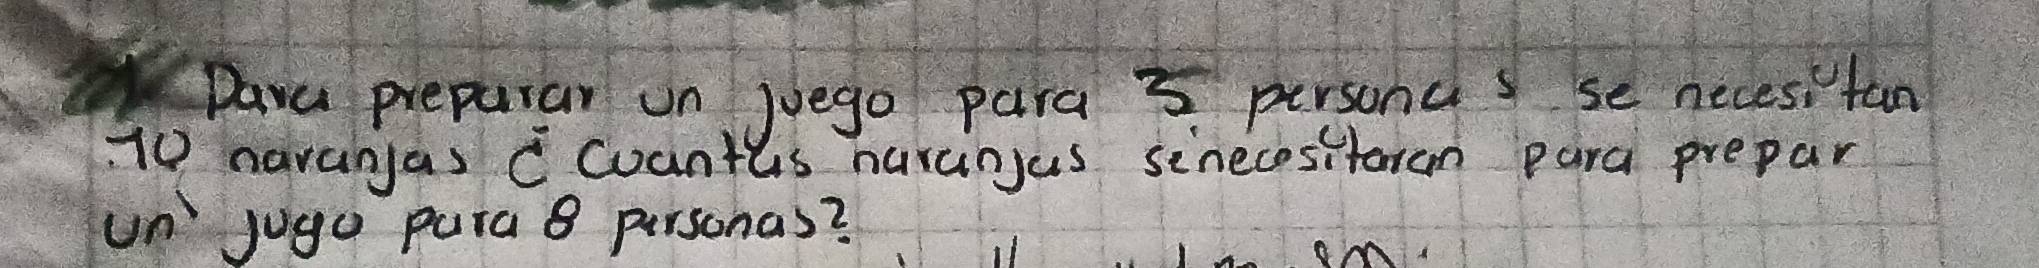 1 Para preparar un juego para 5 personas se necesitan
10 naranjas ¿Cuantas naranjas senecesitaran para prepar
un jugo para 8 personas?